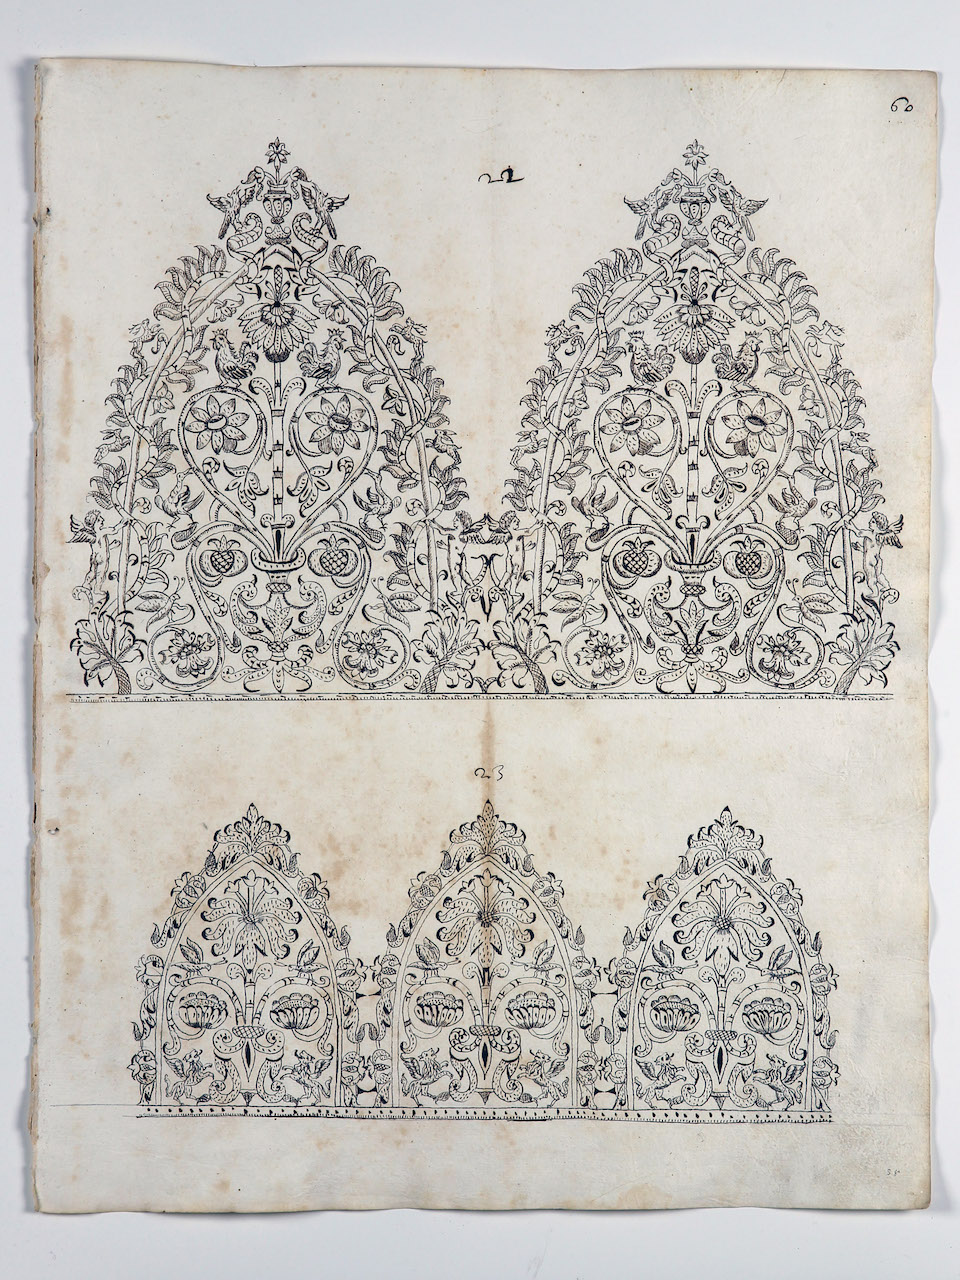 60
22
23
55